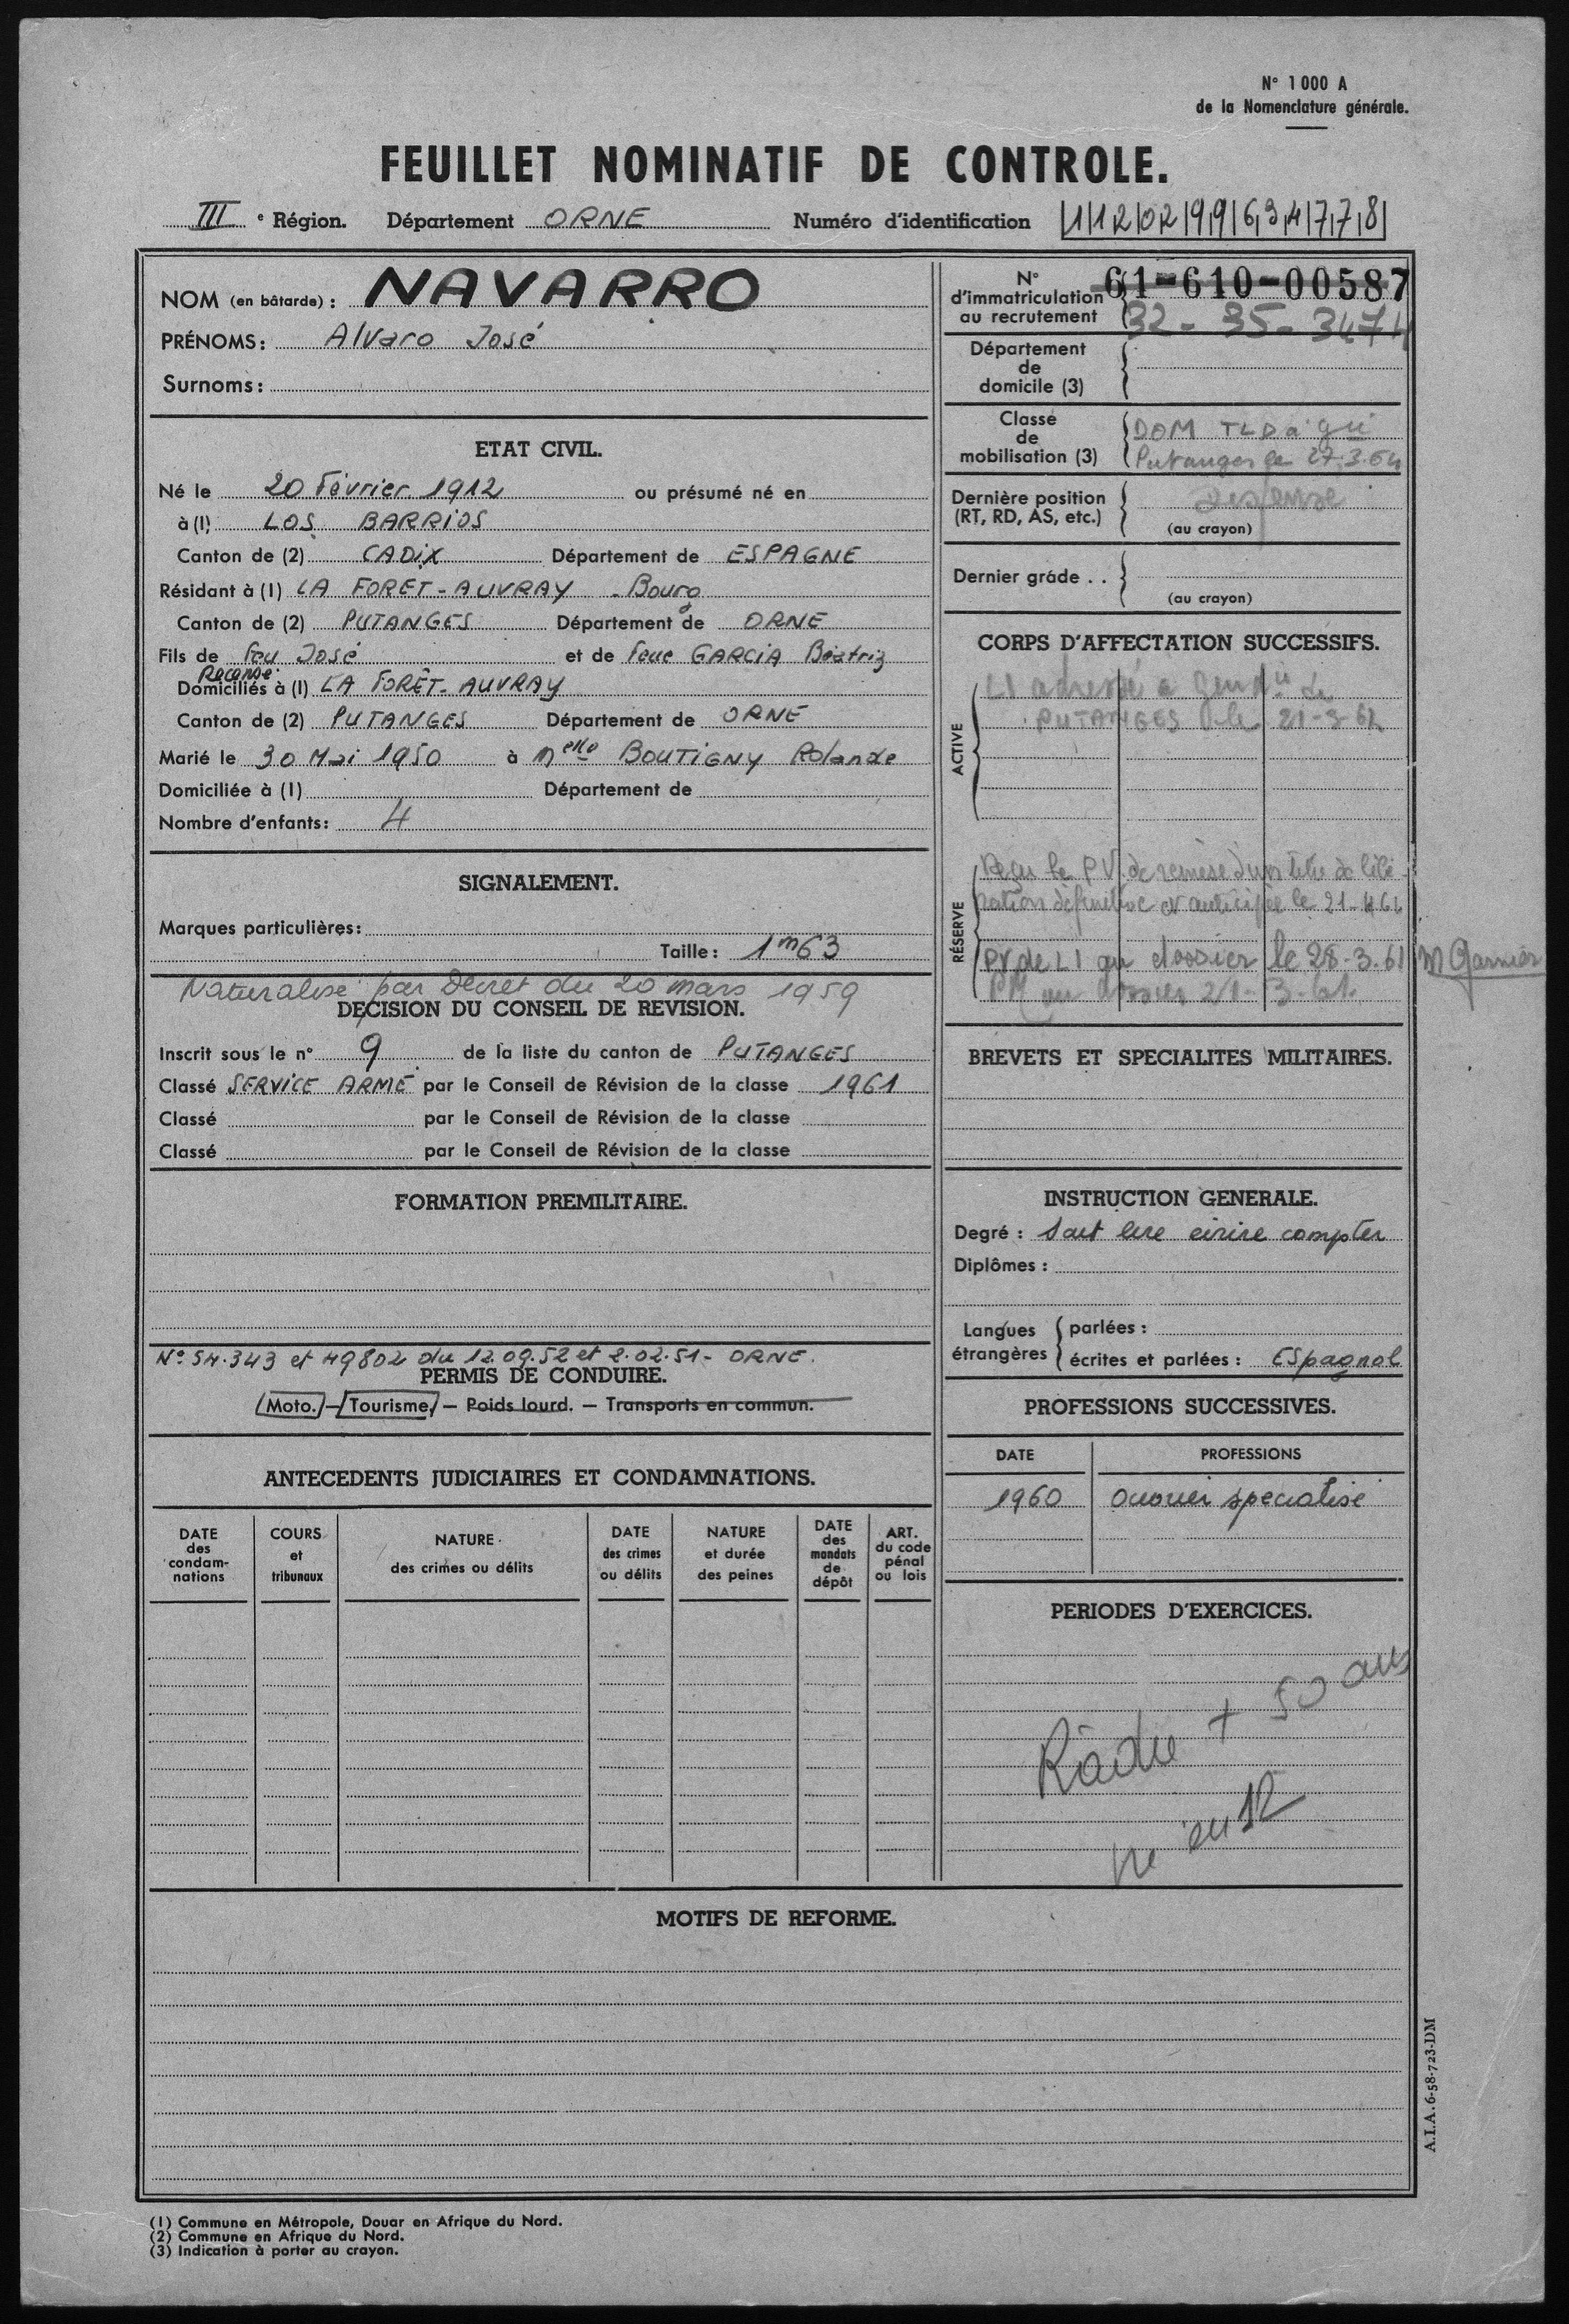 N° 1000 A
de la Nomenclature générale.
FEUILLET NOMINATIF DE CONTROLE.
III e Région. Département ORNE Numéro d'identification 1 12 02 99 6 3 4 7 7 8
NOM (en bâtarde) : NAVARRO
PRÉNOMS : Alvaro José
Surnoms :
ETAT CIVIL.
Né le 20 Février 1912 ou présumé né en
à (1) LOS BARRIOS
Canton de (2) CADIX Département de ESPAGNE
Résidant à (1) LA FORET-AUVRAY - Bourg
Canton de (2) PUTANGES Département de ORNE
Fils de feu José et de feue GARCIA Béatriz
Recensé
Domiciliés à (1) LA FORÊT-AUVRAY
Canton de (2) PUTANGES Département de ORNE
Marié le 30 Mai 1950 à Melle BOUTIGNY Rolande
Domiciliée à (1) Département de
Nombre d'enfants : 4
SIGNALEMENT.
Marques particulières :
Taille : 1m63
Naturalisé par Décret du 20 mars 1959
DECISION DU CONSEIL DE REVISION.
Inscrit sous le n° 9 de la liste du canton de PUTANGES
Classé SERVICE ARMÉ par le Conseil de Révision de la classe 1961
Classé par le Conseil de Révision de la classe
Classé par le Conseil de Révision de la classe
FORMATION PREMILITAIRE.
N° 54.343 et 49802 du 12.09.52 et 2.02.51 - ORNE.
PERMIS DE CONDUIRE.
Moto. — Tourisme. — Poids lourd. — Transports en commun.
ANTECEDENTS JUDICIAIRES ET CONDAMNATIONS.
DATE des condam-nations
COURS et tribunaux
NATURE des crimes ou délits
DATE des crimes ou délits
NATURE et durée des peines
DATE des mandats de dépôt
ART. du code pénal ou lois
N° d'immatriculation au recrutement
61-610-00587
32-35-3474
Département de domicile (3)
Classe de mobilisation (3)
DOM TLD à gie
Putanges le 27.3.64
Dernière position (RT, RD, AS, etc.)
(au crayon)
Dernier grade . .
(au crayon)
CORPS D'AFFECTATION SUCCESSIFS.
ACTIVE
LI adressé à Gendie de
PUTANGES le 21-3-62
RÉSERVE
Reçu le PV de remise d'un titre de libé-
ration définitive et anticipée le 21-4 64
PV de LI au dossier le 28-3.61 M Garnier
PM au dossier 21-3-61.
BREVETS ET SPECIALITES MILITAIRES.
INSTRUCTION GENERALE.
Degré : Sait lire écrire compter
Diplômes :
Langues étrangères
parlées :
écrites et parlées : Espagnol
PROFESSIONS SUCCESSIVES.
DATE PROFESSIONS
1960 Ouvrier spécialisé
PERIODES D'EXERCICES.
Radié + 50 ans
né en 12
MOTIFS DE REFORME.
A.I.A. 6-58-723-DM
(1) Commune en Métropole, Douar en Afrique du Nord.
(2) Commune en Afrique du Nord.
(3) Indication à porter au crayon.